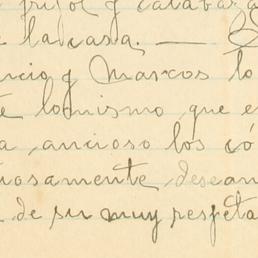 frijol y calabaza
la casa. —
y Marcos lo
lo mismo que e
ancioso los có
osamente, desean
de su muy respeta